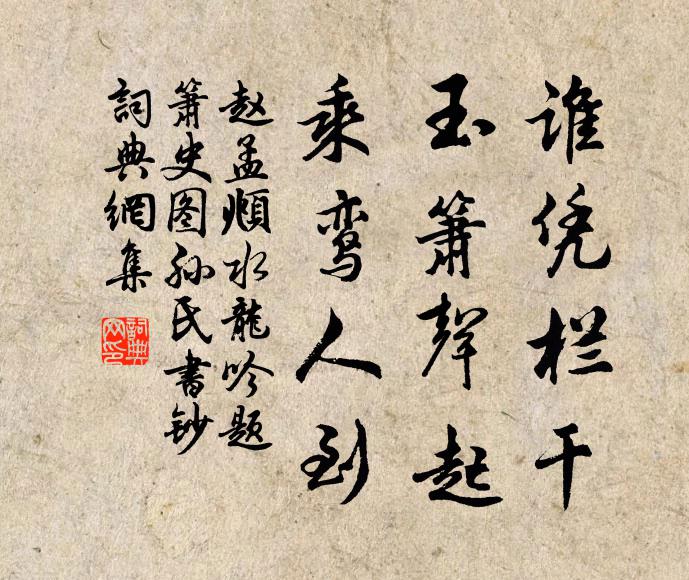 谁凭栏干
玉箫聲起
乘鸾人到
赵孟頫水龍吟题
箫史图孙氏書鈔
詞典網集
詞典網印